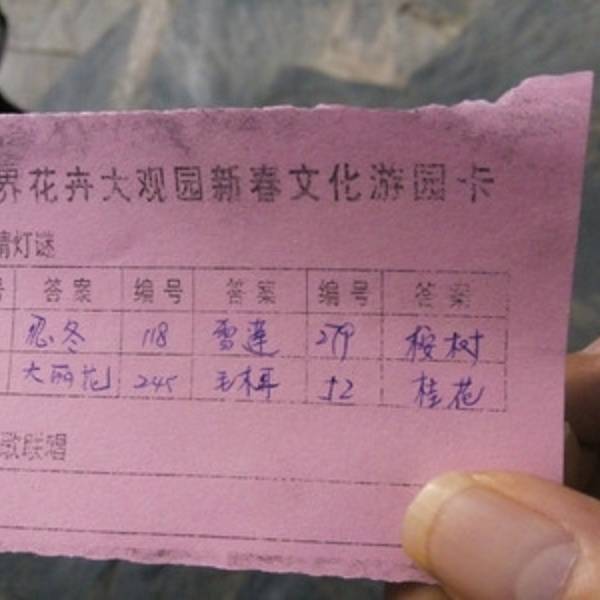 界花卉大观园新春文化游园卡
猜灯谜
号 答案 编号 答案 编号 答案
忍冬 118 雪莲 279 桉树
大丽花 245 毛桃 52 桂花
歌联唱